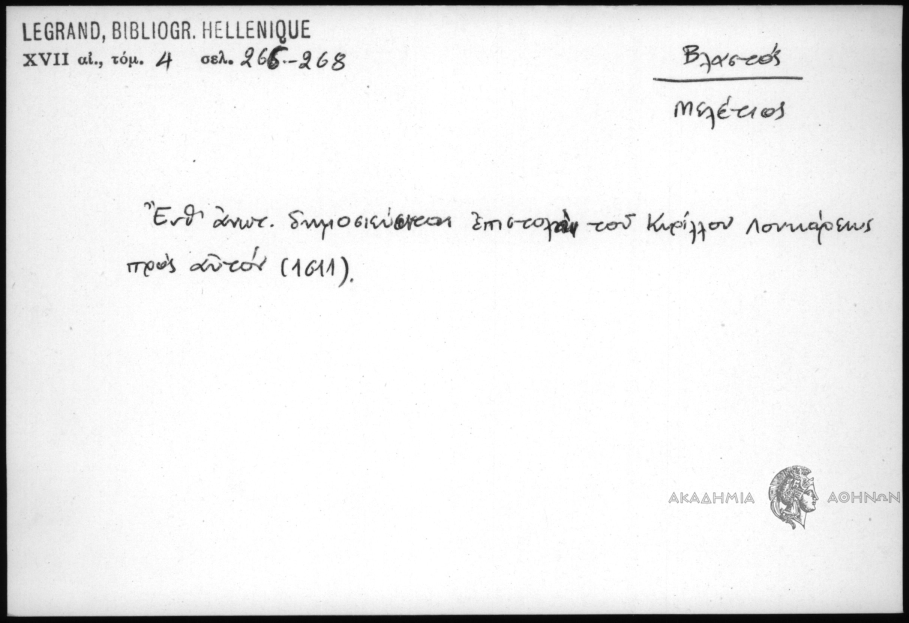 LEGRAND, BIBLIOGR. HELLENIQUE
XVII αἰ., τόμ. 4 σελ. 266-268
Βλαστός
Μελέτιος
Ἔνθ' ἀνωτ. δημοσιεύεται ἐπιστολὴ τοῦ Κυρίλλου Λουκάρεως
πρὸς αὐτόν (1611).
ΑΚΑΔΗΜΙΑ ΑΘΗΝΩΝ